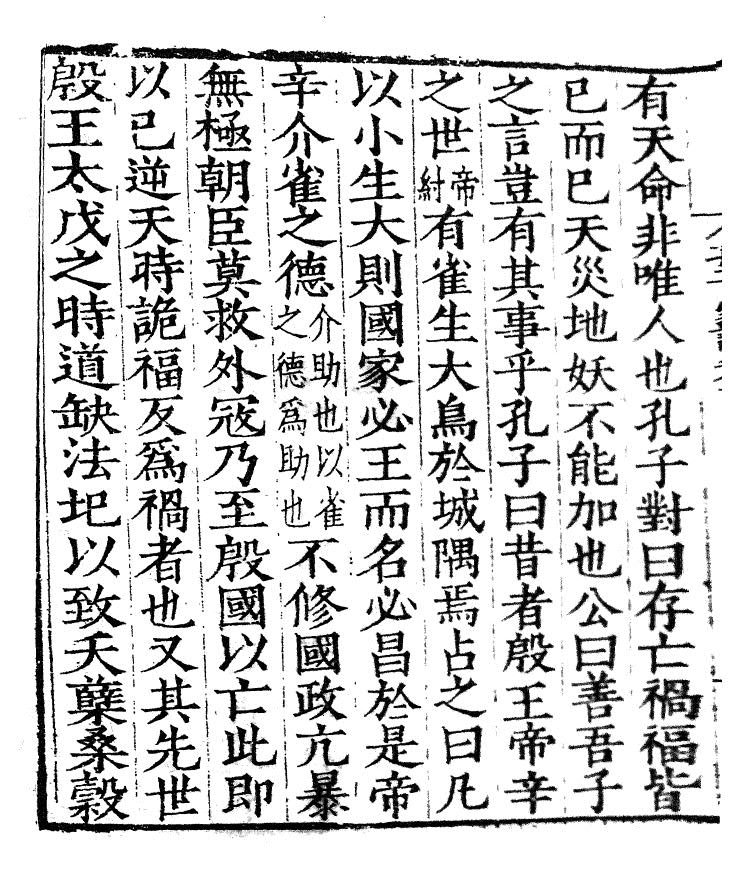 有天命非唯人也孔子對曰存亡禍福皆
己而已天災地妖不能加也公曰善吾子
之言豈有其事乎孔子曰昔者殷王帝辛
之世帝紂有雀生大鳥於城隅焉占之曰凡
以小生大則國家必王而名必昌於是帝
辛介雀之德介助也以雀之德爲助也不修國政亢暴
無極朝臣莫救外冦乃至殷國以亡此即
以己逆天時詭福反爲禍者也又其先世
殷王太戊之時道缺法圮以致夭孽桑穀